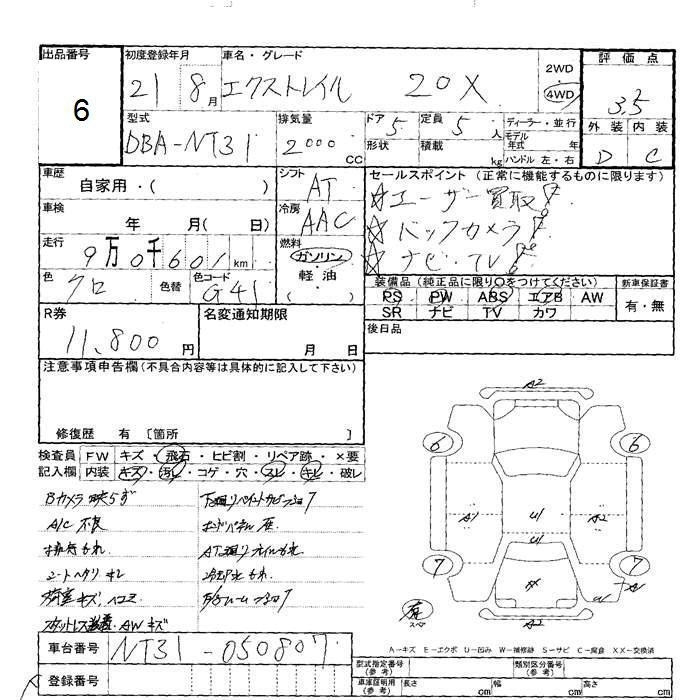 出品番号
6
初度登録年月
21 8月
車名・グレード
エクストレイル 20X
2WD
4WD
評価点
3.5
外装 内装
D C
型式
DBA-NT31
排気量
2000 CC
ドア 5
形状
定員 5人
積載 kg
ディーラー・並行
モデル年式 年
ハンドル 左・右
車歴
自家用・( )
車検
年 月( 日)
走行
9万0千601km
色
クロ
色替
色コード
G41
シフト
AT
冷房
AAC
燃料
ガソリン
軽油
( )
セールスポイント (正常に機能するものに限ります)
☆ユーザー買取!
☆バックカメラ!
☆ナビ・TV!
装備品 (純正品に限り○をつけてください)
PS PW ABS エアB AW
SR ナビ TV カワ
新車保証書
有・無
後日品
R券
11,800円
名変通知期限
月 日
注意事項申告欄 (不具合内容等は具体的に記入して下さい)
修復歴 有 〔箇所 〕
検査員記入欄
FW キズ・飛石・ヒビ割・リペア跡・×要
内装 キズ・汚レ・コゲ・穴・スレ・キレ・破レ
Bカメラ映らず
A/C 不良
シートヘタリ キレ
荷室キズ、ヘコミ
AWキズ
A2
6 6
A1 U1 A2
U1
7 7
U
A2
スペア
A-キズ E-エクボ U-凹み W-補修跡 S-サビ C-腐食 XX-交換済
車台番号
NT31-050807
登録番号
型式指定番号(参考)
類別区分番号(参考)
車庫証明用(参考) 長さ cm 幅 cm 高さ cm